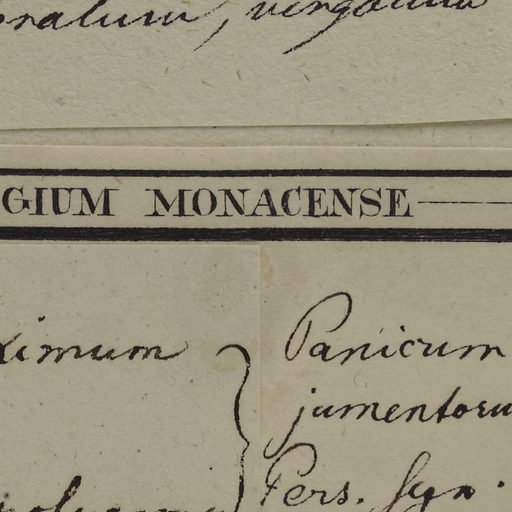 oratum, virgatum
GIUM MONACENSE
ximum } Panicum
jumentoru
Pers. Syn.